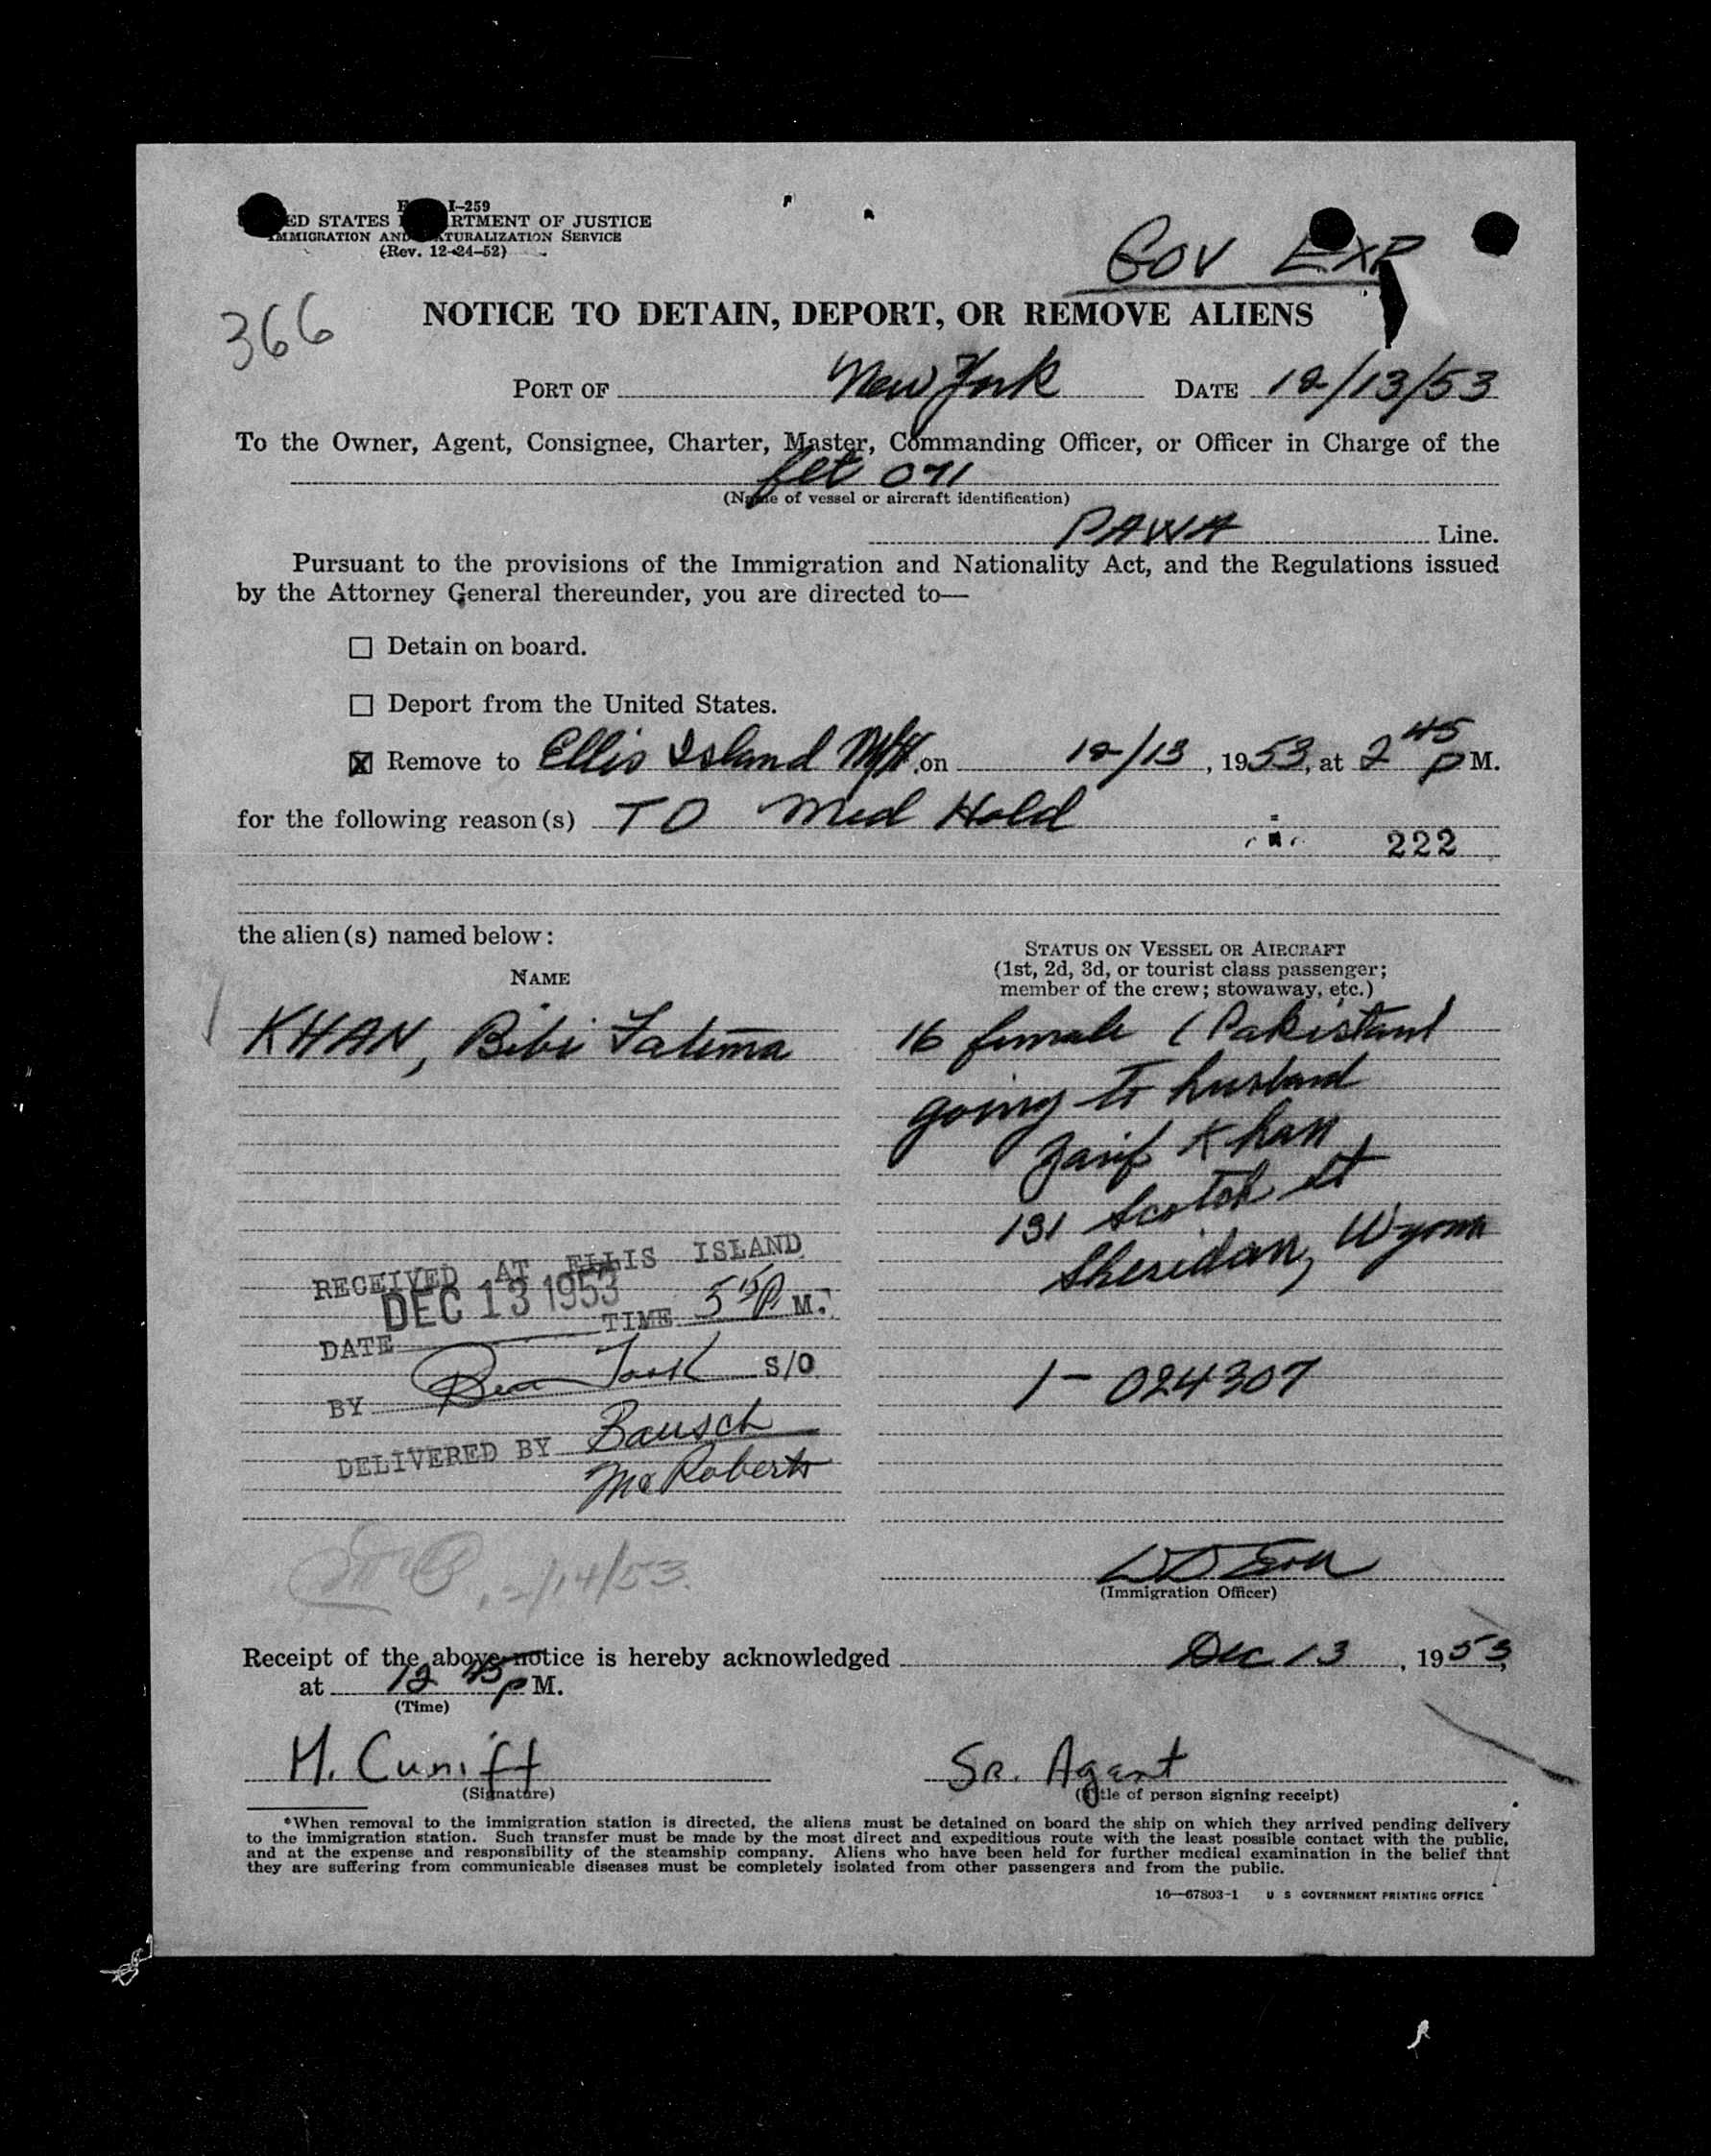 I-259
ED STATES RTMENT OF JUSTICE
IMMIGRATION AND NATURALIZATION SERVICE
(Rev. 12-24-52)
GOV EXP
366
NOTICE TO DETAIN, DEPORT, OR REMOVE ALIENS
PORT OF New York DATE 12/13/53
To the Owner, Agent, Consignee, Charter, Master, Commanding Officer, or Officer in Charge of the
flt 071
(Name of vessel or aircraft identification)
PAWA Line.
Pursuant to the provisions of the Immigration and Nationality Act, and the Regulations issued
by the Attorney General thereunder, you are directed to—
☐ Detain on board.
☐ Deport from the United States.
☒ Remove to Ellis Island on 12/13, 1953, at 2 45 P M.
for the following reason(s) TO Med Hold
222
the alien(s) named below:
NAME
STATUS ON VESSEL OR AIRCRAFT
(1st, 2d, 3d, or tourist class passenger;
member of the crew; stowaway, etc.)
KHAN, Bibi Fatima
16 female (Pakistani
going to husband
Zarif Khan
131 Scotch St
Sheridan, Wyom
RECEIVED AT ELLIS ISLAND
DEC 13 1953
DATE TIME 5 15 P. M.
BY S/O
DELIVERED BY Bausch
McRoberts
1- 024307
12/14/53.
(Immigration Officer)
Receipt of the above notice is hereby acknowledged Dec 13, 1953,
at 12 45 P M.
(Time)
M. Cuniff
(Signature)
SR. Agent
(Title of person signing receipt)
*When removal to the immigration station is directed, the aliens must be detained on board the ship on which they arrived pending delivery
to the immigration station. Such transfer must be made by the most direct and expeditious route with the least possible contact with the public,
and at the expense and responsibility of the steamship company. Aliens who have been held for further medical examination in the belief that
they are suffering from communicable diseases must be completely isolated from other passengers and from the public.
16—67803-1 U S GOVERNMENT PRINTING OFFICE